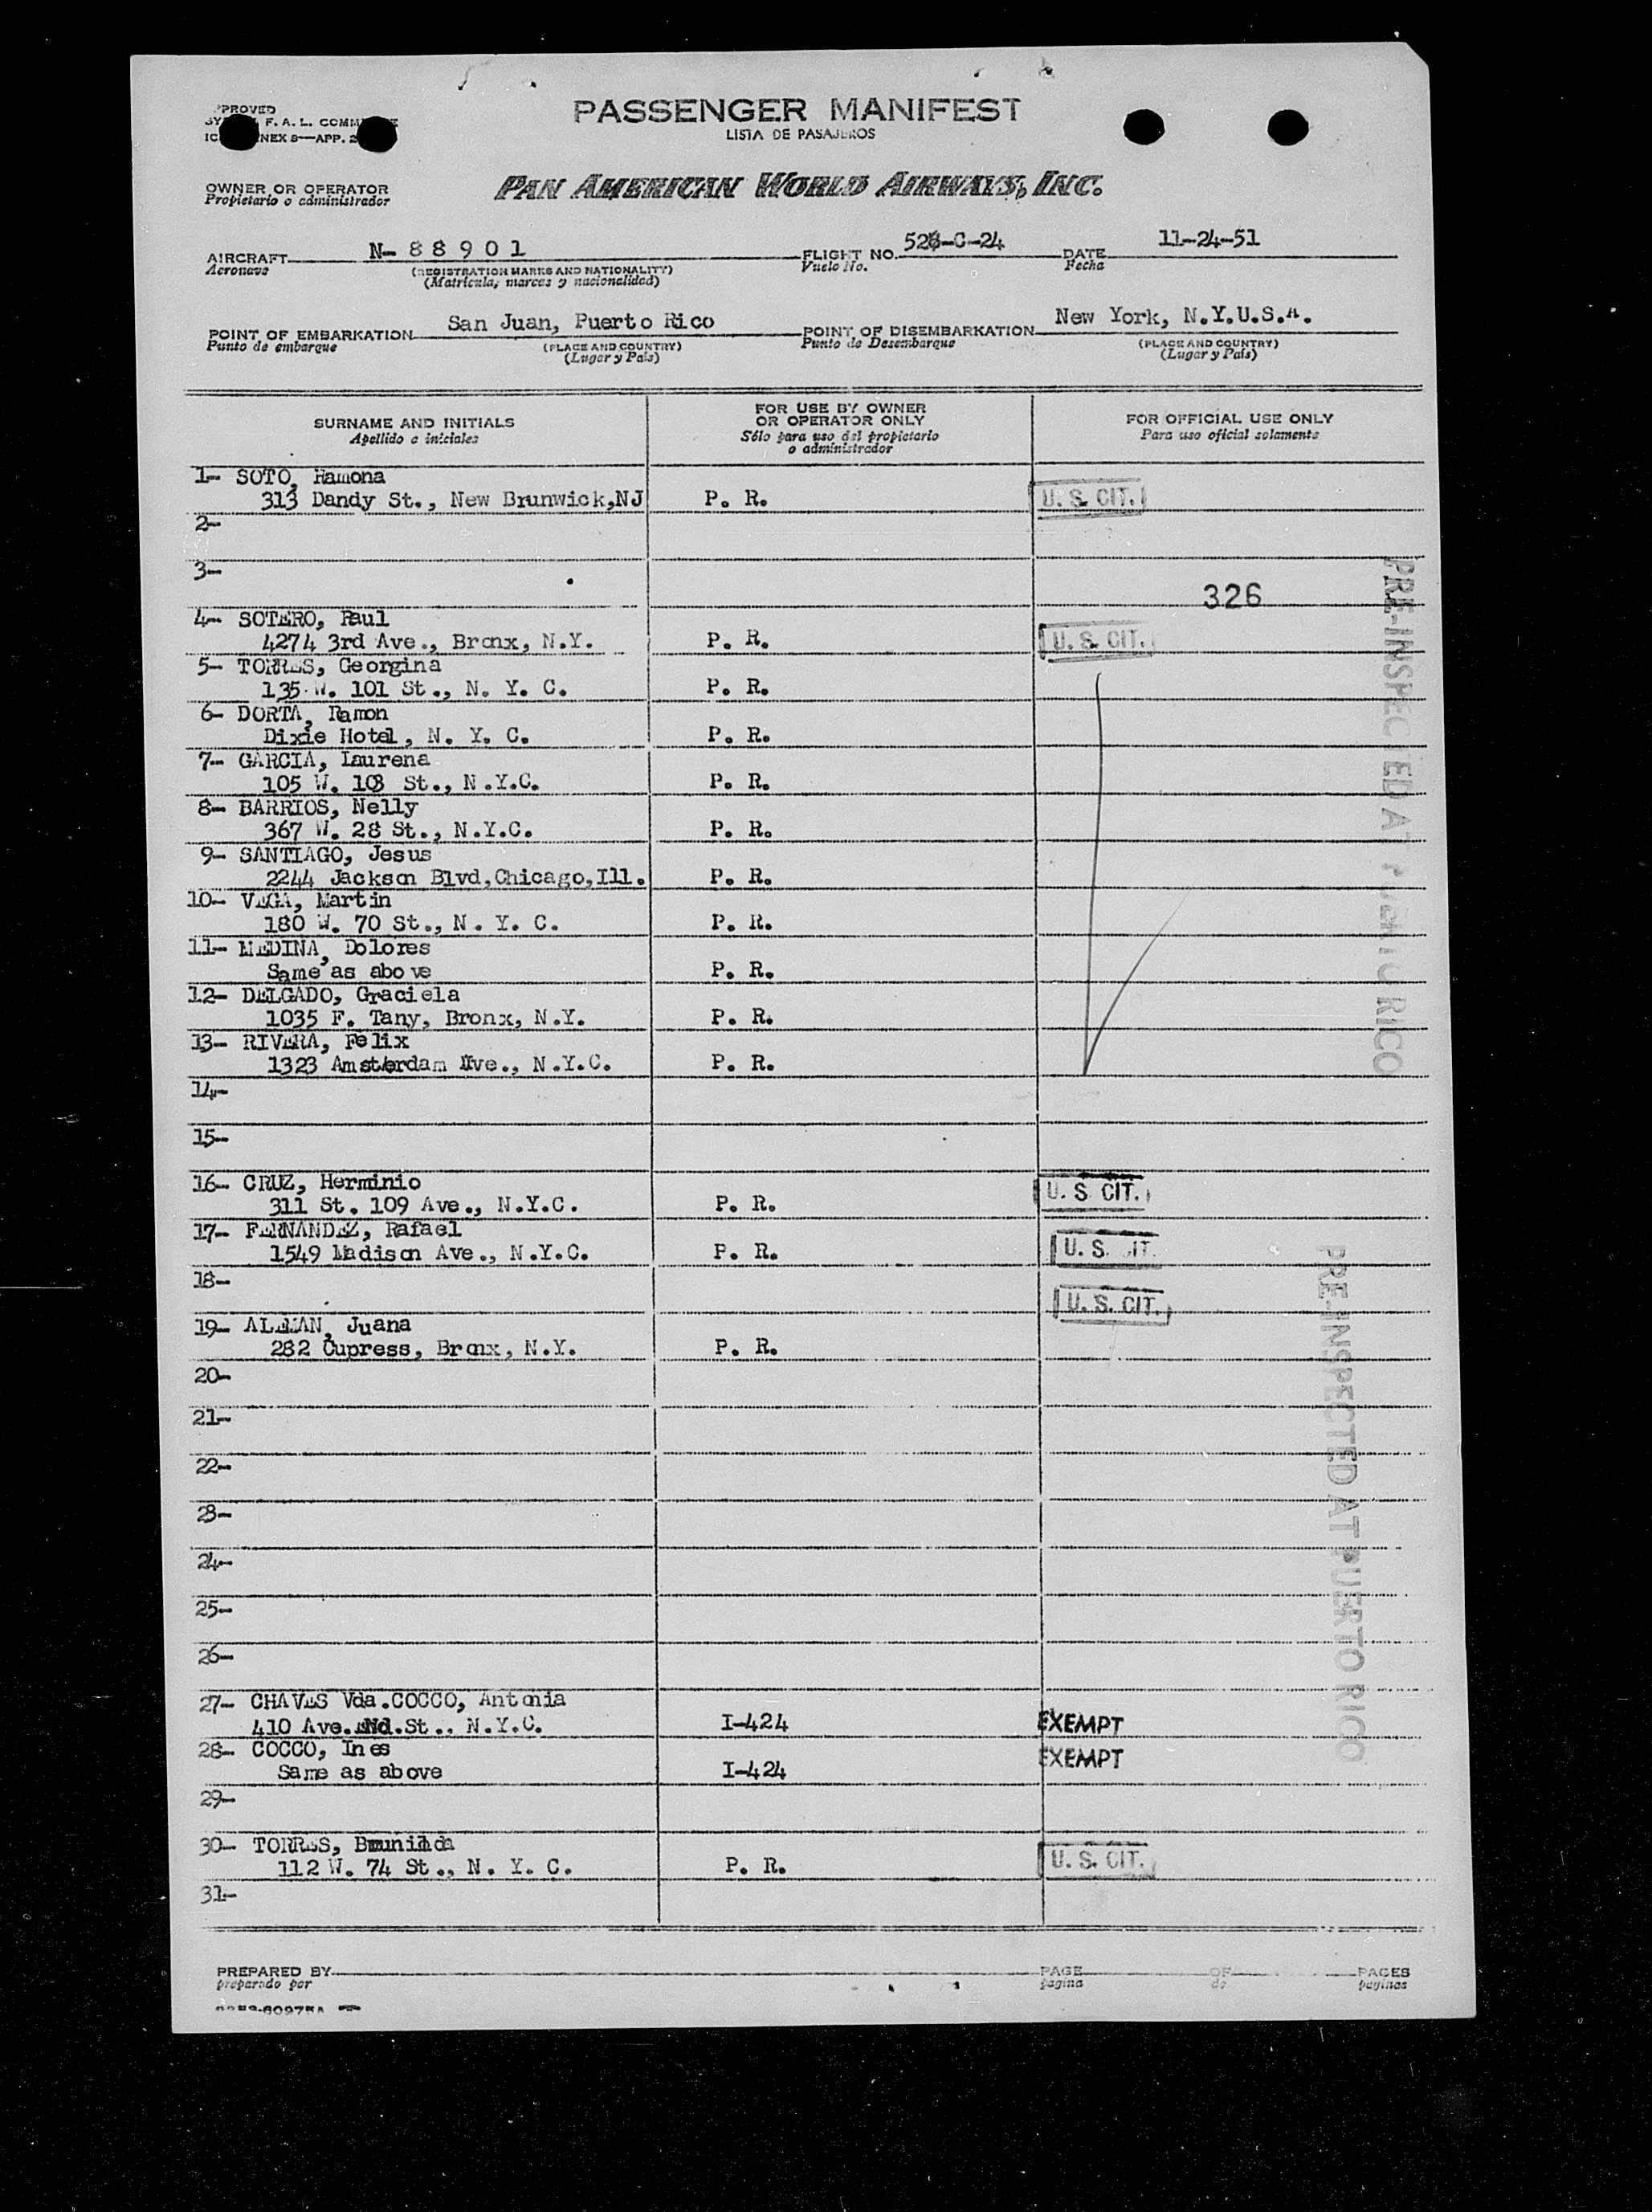 PASSENGER MANIFEST
LISTA DE PASAJEROS
PROVED
F. A. L.
NEX 9—APP. 2
OWNER OR OPERATOR
Propietario o administrador
PAN AMERICAN WORLD AIRWAYS, INC.
AIRCRAFT N- 8 8 9 0 1 FLIGHT NO. -C-24 DATE 11-24-51
Aeronave (REGISTRATION MARKS AND NATIONALITY) Vuelo No. Fecha
(Matricula, marcas y nacionalidad)
POINT OF EMBARKATION San Juan, Puerto Rico POINT OF DISEMBARKATION New York, N.Y.U.S.A.
Punto de embarque (PLACE AND COUNTRY) Punto de Desembarque (PLACE AND COUNTRY)
(Lugar y País) (Lugar y País)
SURNAME AND INITIALS FOR USE BY OWNER OR OPERATOR ONLY FOR OFFICIAL USE ONLY
Apellido e iniciales Sólo para uso del propietario o administrador Para uso oficial solamente
1- SOTO, Ramona
313 Dandy St., New Brunwick,NJ P. R. U. S. CIT.
2-
3-
326
4- SOTERO, Paul
4274 3rd Ave., Bronx, N.Y. P. R. U. S. CIT.
5- TORRES, Georgina
135 W. 101 St., N. Y. C. P. R.
6- DORTA, Ramon
Dixie Hotel, N. Y. C. P. R.
7- GARCIA, Laurena
105 W. St., N.Y.C. P. R.
8- BARRIOS, Nelly
367 W. 28 St., N.Y.C. P. R.
9- SANTIAGO, Jesus
2244 Jackson Blvd,Chicago,Ill. P. R.
10- VEGA, Martin
180 W. 70 St., N. Y. C. P. R.
11- MEDINA, Dolores
Same as above P. R.
12- DELGADO, Graciela
1035 F. Tany, Bronx, N.Y. P. R.
13- RIVERA, Felix
1323 Amsterdam Ave., N.Y.C. P. R.
14-
15-
16- CRUZ, Herminio U. S. CIT.
311 St. 109 Ave., N.Y.C. P. R.
17- FERNANDEZ, Rafael
1549 Madison Ave., N.Y.C. P. R. U. S. CIT.
18-
U. S. CIT.
19- ALEMAN, Juana
282 Cupress, Bronx, N.Y. P. R.
20-
21-
22-
23-
24-
25-
26-
27- CHAVES Vda.COCCO, Antonia
410 Ave. St., N.Y.C. I-424 EXEMPT
28- COCCO, Ines EXEMPT
Same as above I-424
29-
30- TORRES, Brunilda
112 W. 74 St., N. Y. C. P. R. U. S. CIT.
31-
PRE-INSPECTED AT PUERTO RICO
PRE-INSPECTED AT PUERTO RICO
PREPARED BY PAGE OF PAGES
preparado por pagina de paginas